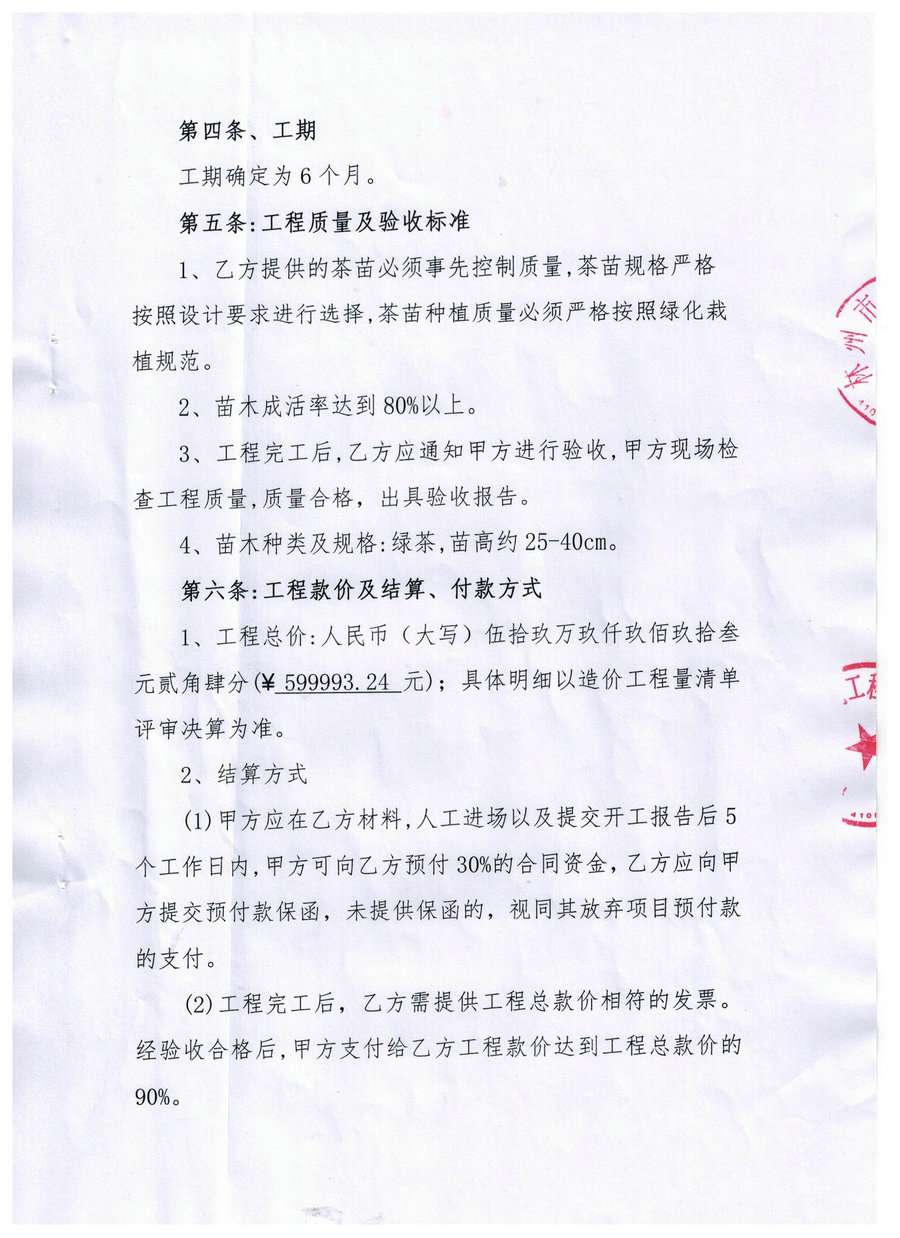 第四条、工期
工期确定为6个月。
第五条:工程质量及验收标准
1、乙方提供的茶苗必须事先控制质量,茶苗规格严格
按照设计要求进行选择,茶苗种植质量必须严格按照绿化栽
植规范。
2、苗木成活率达到80%以上。
3、工程完工后,乙方应通知甲方进行验收,甲方现场检
查工程质量,质量合格，出具验收报告。
4、苗木种类及规格:绿茶,苗高约25-40cm。
第六条:工程款价及结算、付款方式
1、工程总价:人民币（大写）伍拾玖万玖仟玖佰玖拾叁
元贰角肆分(¥ 599993.24 元)；具体明细以造价工程量清单
评审决算为准。
2、结算方式
(1)甲方应在乙方材料,人工进场以及提交开工报告后5
个工作日内,甲方可向乙方预付30%的合同资金，乙方应向甲
方提交预付款保函，未提供保函的，视同其放弃项目预付款
的支付。
(2)工程完工后，乙方需提供工程总款价相符的发票。
经验收合格后,甲方支付给乙方工程款价达到工程总款价的
90%。
州市
工程